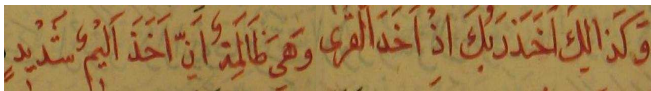 وَكَذَالِكَ اَخَذَ رَبُّكَ اِذْ اَخَذَ الْقُرٰى وَهَىَ ظَالَمِةٌ اَنِّ اَخَذَ اَلَيْمٌ شَدْيدٍ